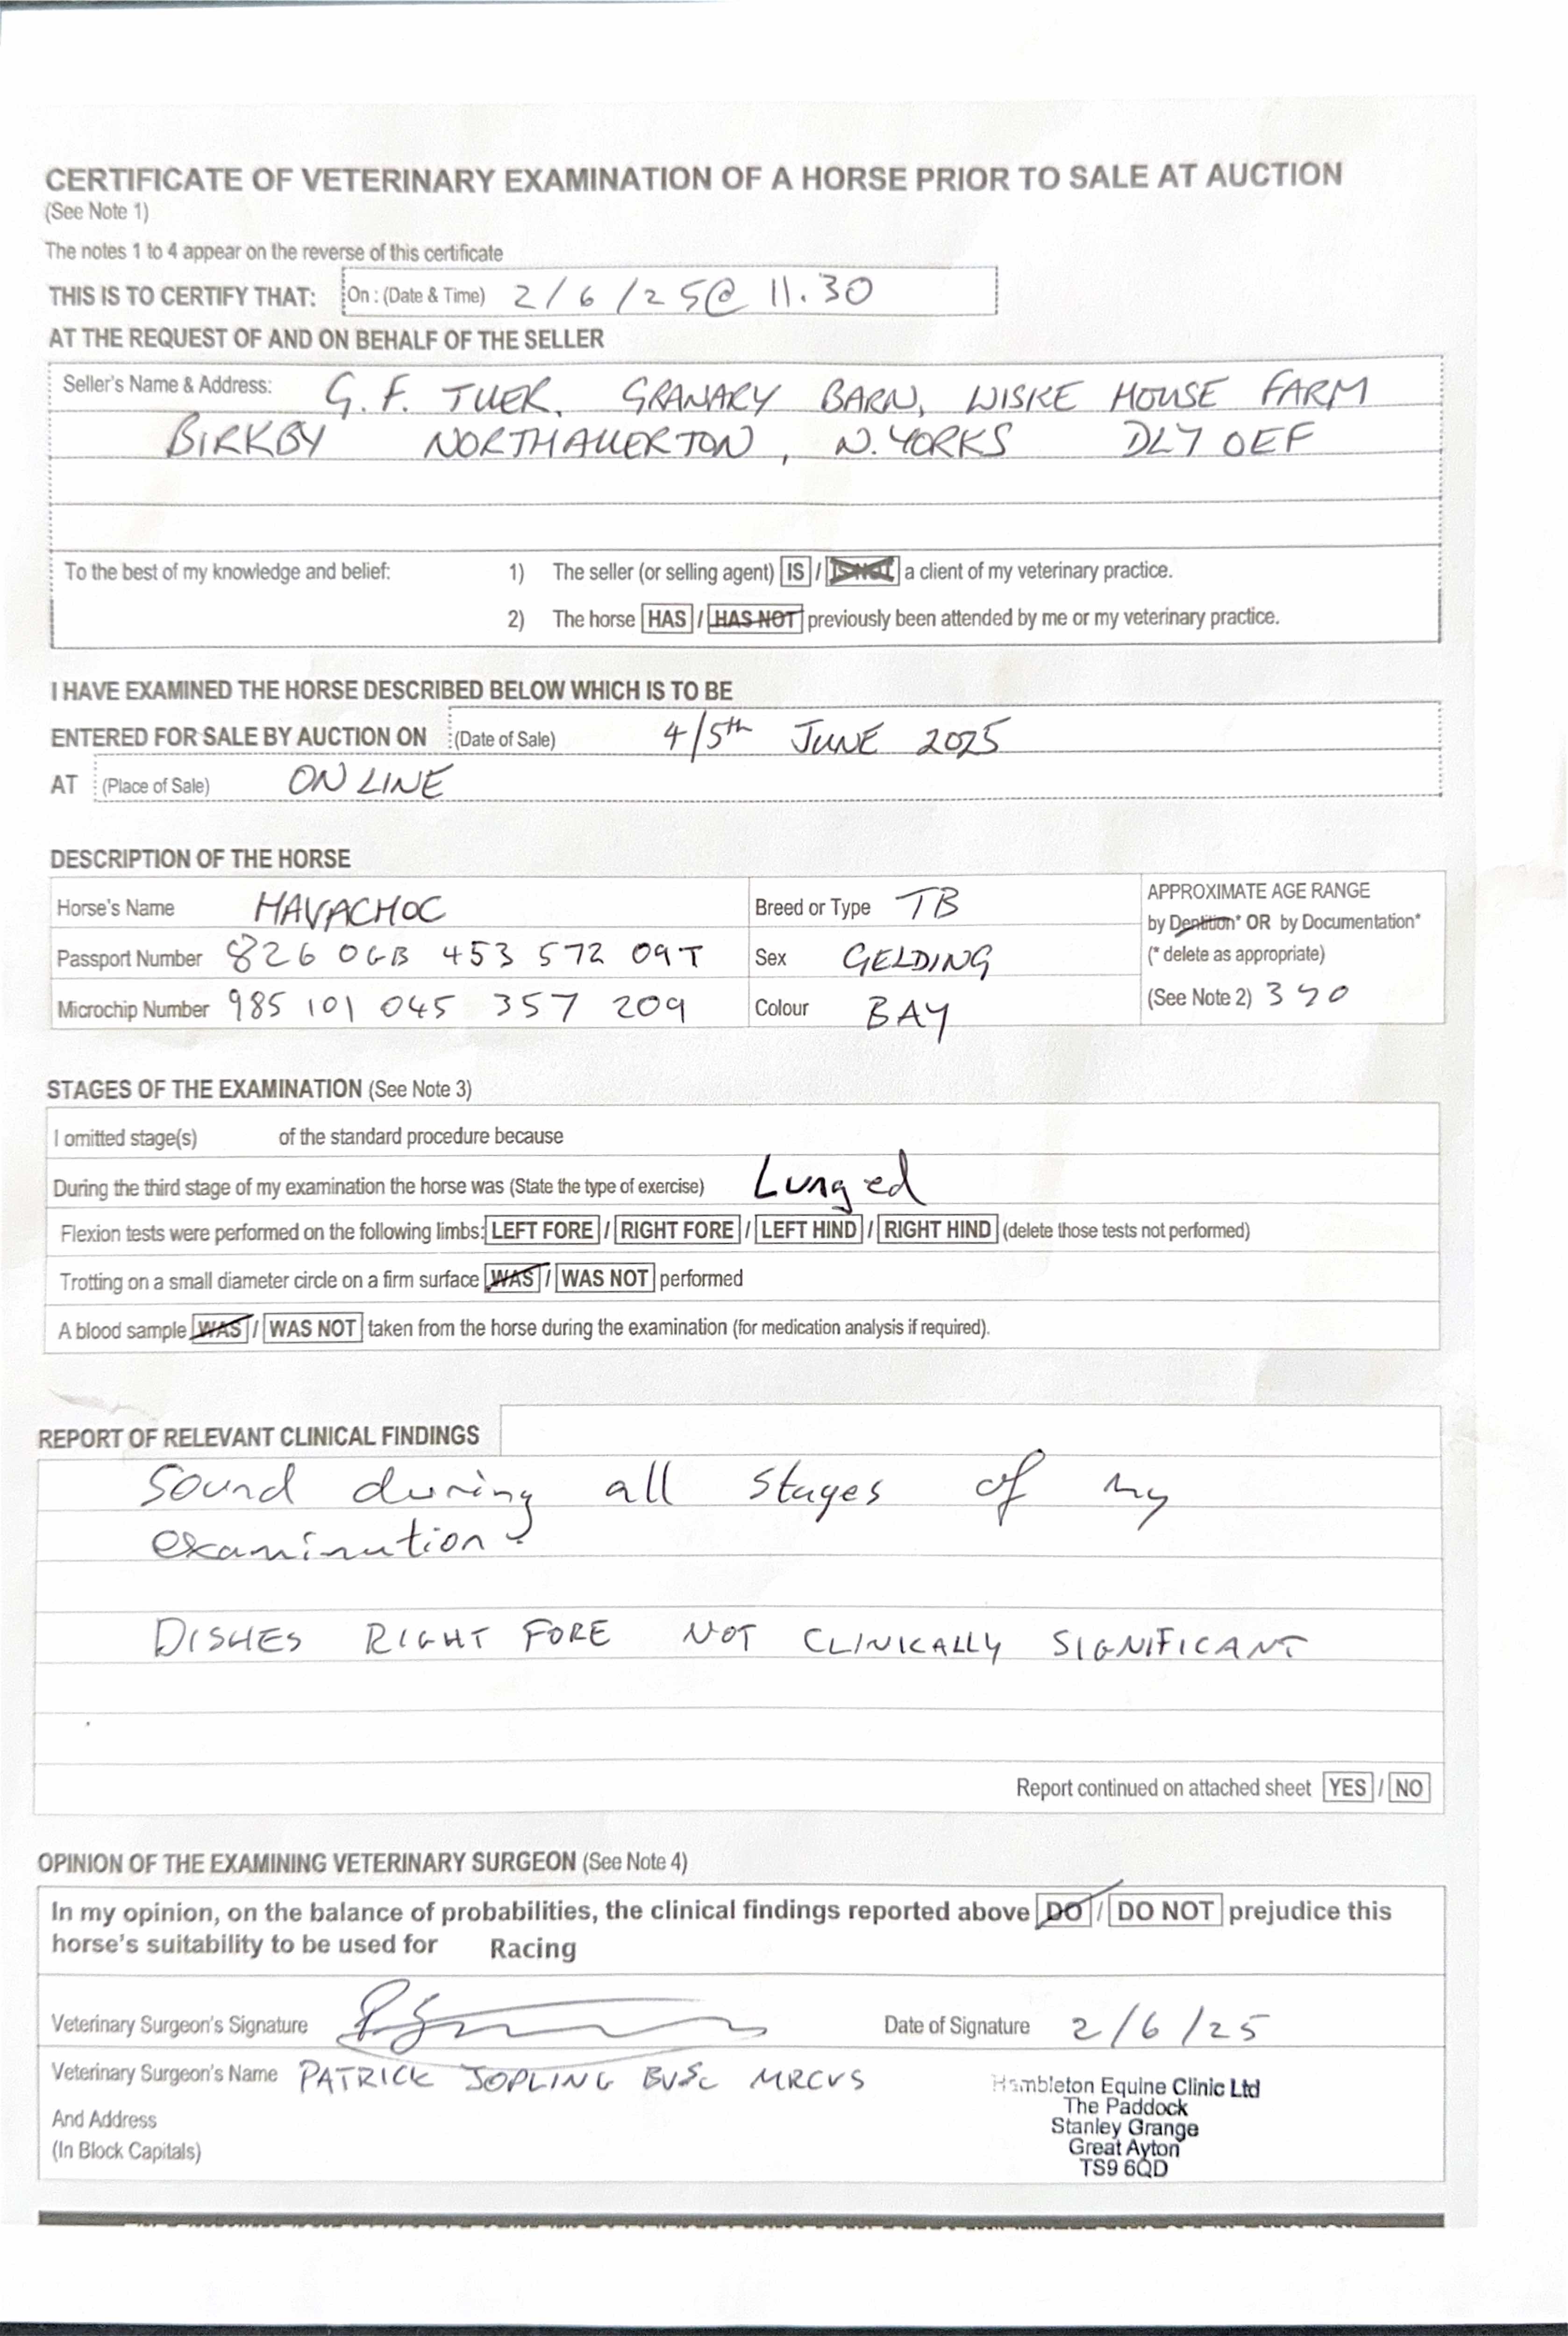 CERTIFICATE OF VETERINARY EXAMINATION OF A HORSE PRIOR TO SALE AT AUCTION
(See Note 1)
The notes 1 to 4 appear on the reverse of this certificate
THIS IS TO CERTIFY THAT: On : (Date & Time) 2/6/25@ 11.30
AT THE REQUEST OF AND ON BEHALF OF THE SELLER
Seller's Name & Address: G.F. TUER, GRANARY BARN, WISKE HOUSE FARM
BIRKBY NORTHALLERTON, N.YORKS DL7 0EF
To the best of my knowledge and belief: 1) The seller (or selling agent) IS / IS NOT a client of my veterinary practice.
2) The horse HAS / HAS NOT previously been attended by me or my veterinary practice.
I HAVE EXAMINED THE HORSE DESCRIBED BELOW WHICH IS TO BE
ENTERED FOR SALE BY AUCTION ON (Date of Sale) 4/5th JUNE 2025
AT (Place of Sale) ONLINE
DESCRIPTION OF THE HORSE
Horse's Name HAVACHOC Breed or Type TB APPROXIMATE AGE RANGE
by Dentition* OR by Documentation*
Passport Number 826 0GB 453 572 09T Sex GELDING (* delete as appropriate)
Microchip Number 985 101 045 357 209 Colour BAY (See Note 2) 3 YO
STAGES OF THE EXAMINATION (See Note 3)
I omitted stage(s) of the standard procedure because
During the third stage of my examination the horse was (State the type of exercise) Lunged
Flexion tests were performed on the following limbs: LEFT FORE / RIGHT FORE / LEFT HIND / RIGHT HIND (delete those tests not performed)
Trotting on a small diameter circle on a firm surface WAS / WAS NOT performed
A blood sample WAS / WAS NOT taken from the horse during the examination (for medication analysis if required).
REPORT OF RELEVANT CLINICAL FINDINGS
Sound during all stages of my
examination.
DISHES RIGHT FORE NOT CLINICALLY SIGNIFICANT
Report continued on attached sheet YES / NO
OPINION OF THE EXAMINING VETERINARY SURGEON (See Note 4)
In my opinion, on the balance of probabilities, the clinical findings reported above DO / DO NOT prejudice this
horse's suitability to be used for Racing
Veterinary Surgeon's Signature Date of Signature 2/6/25
Veterinary Surgeon's Name PATRICK JOPLING BVSc MRCVS
And Address
(In Block Capitals)
Hambleton Equine Clinic Ltd
The Paddock
Stanley Grange
Great Ayton
TS9 6QD